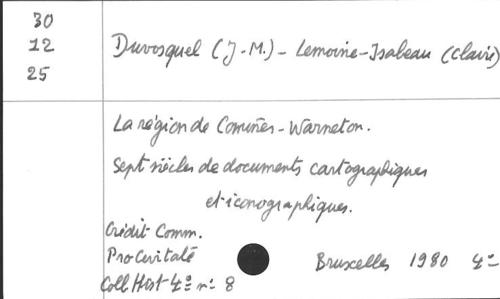 30
12
25
Duvosquel (J-M.) - Lemoine-Isabeau (Claire)
La région de Comines-Warneton.
Sept siècles de documents cartographiques
et iconographiques.
Crédit Comm.
Pro Civitate
Bruxelles 1980 4°
Coll Hist 4° n° 8